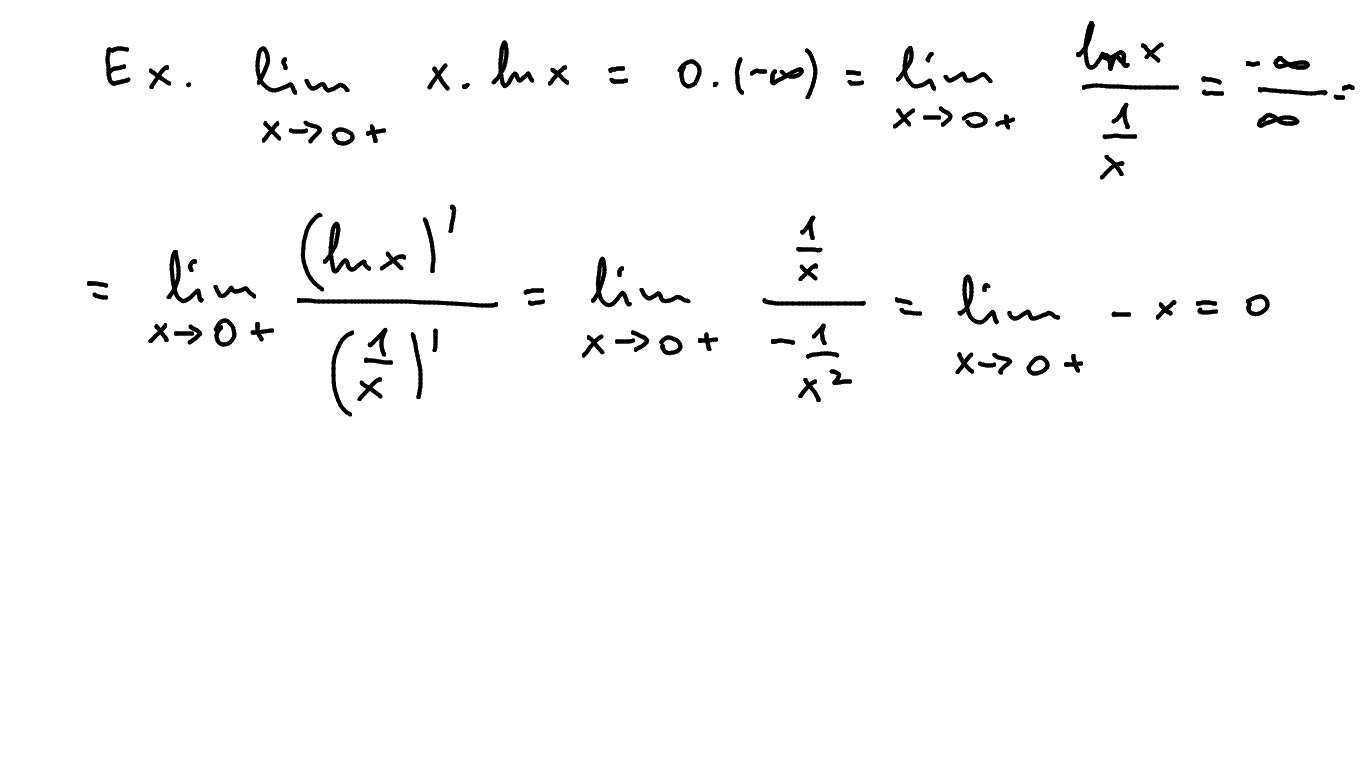 Ex. lim x→0+ x · ln x = 0 · (-∞) = lim x→0+ ln x / (1/x) = -∞/∞ =
= lim x→0+ (ln x)' / (1/x)' = lim x→0+ (1/x) / (-1/x²) = lim x→0+ - x = 0